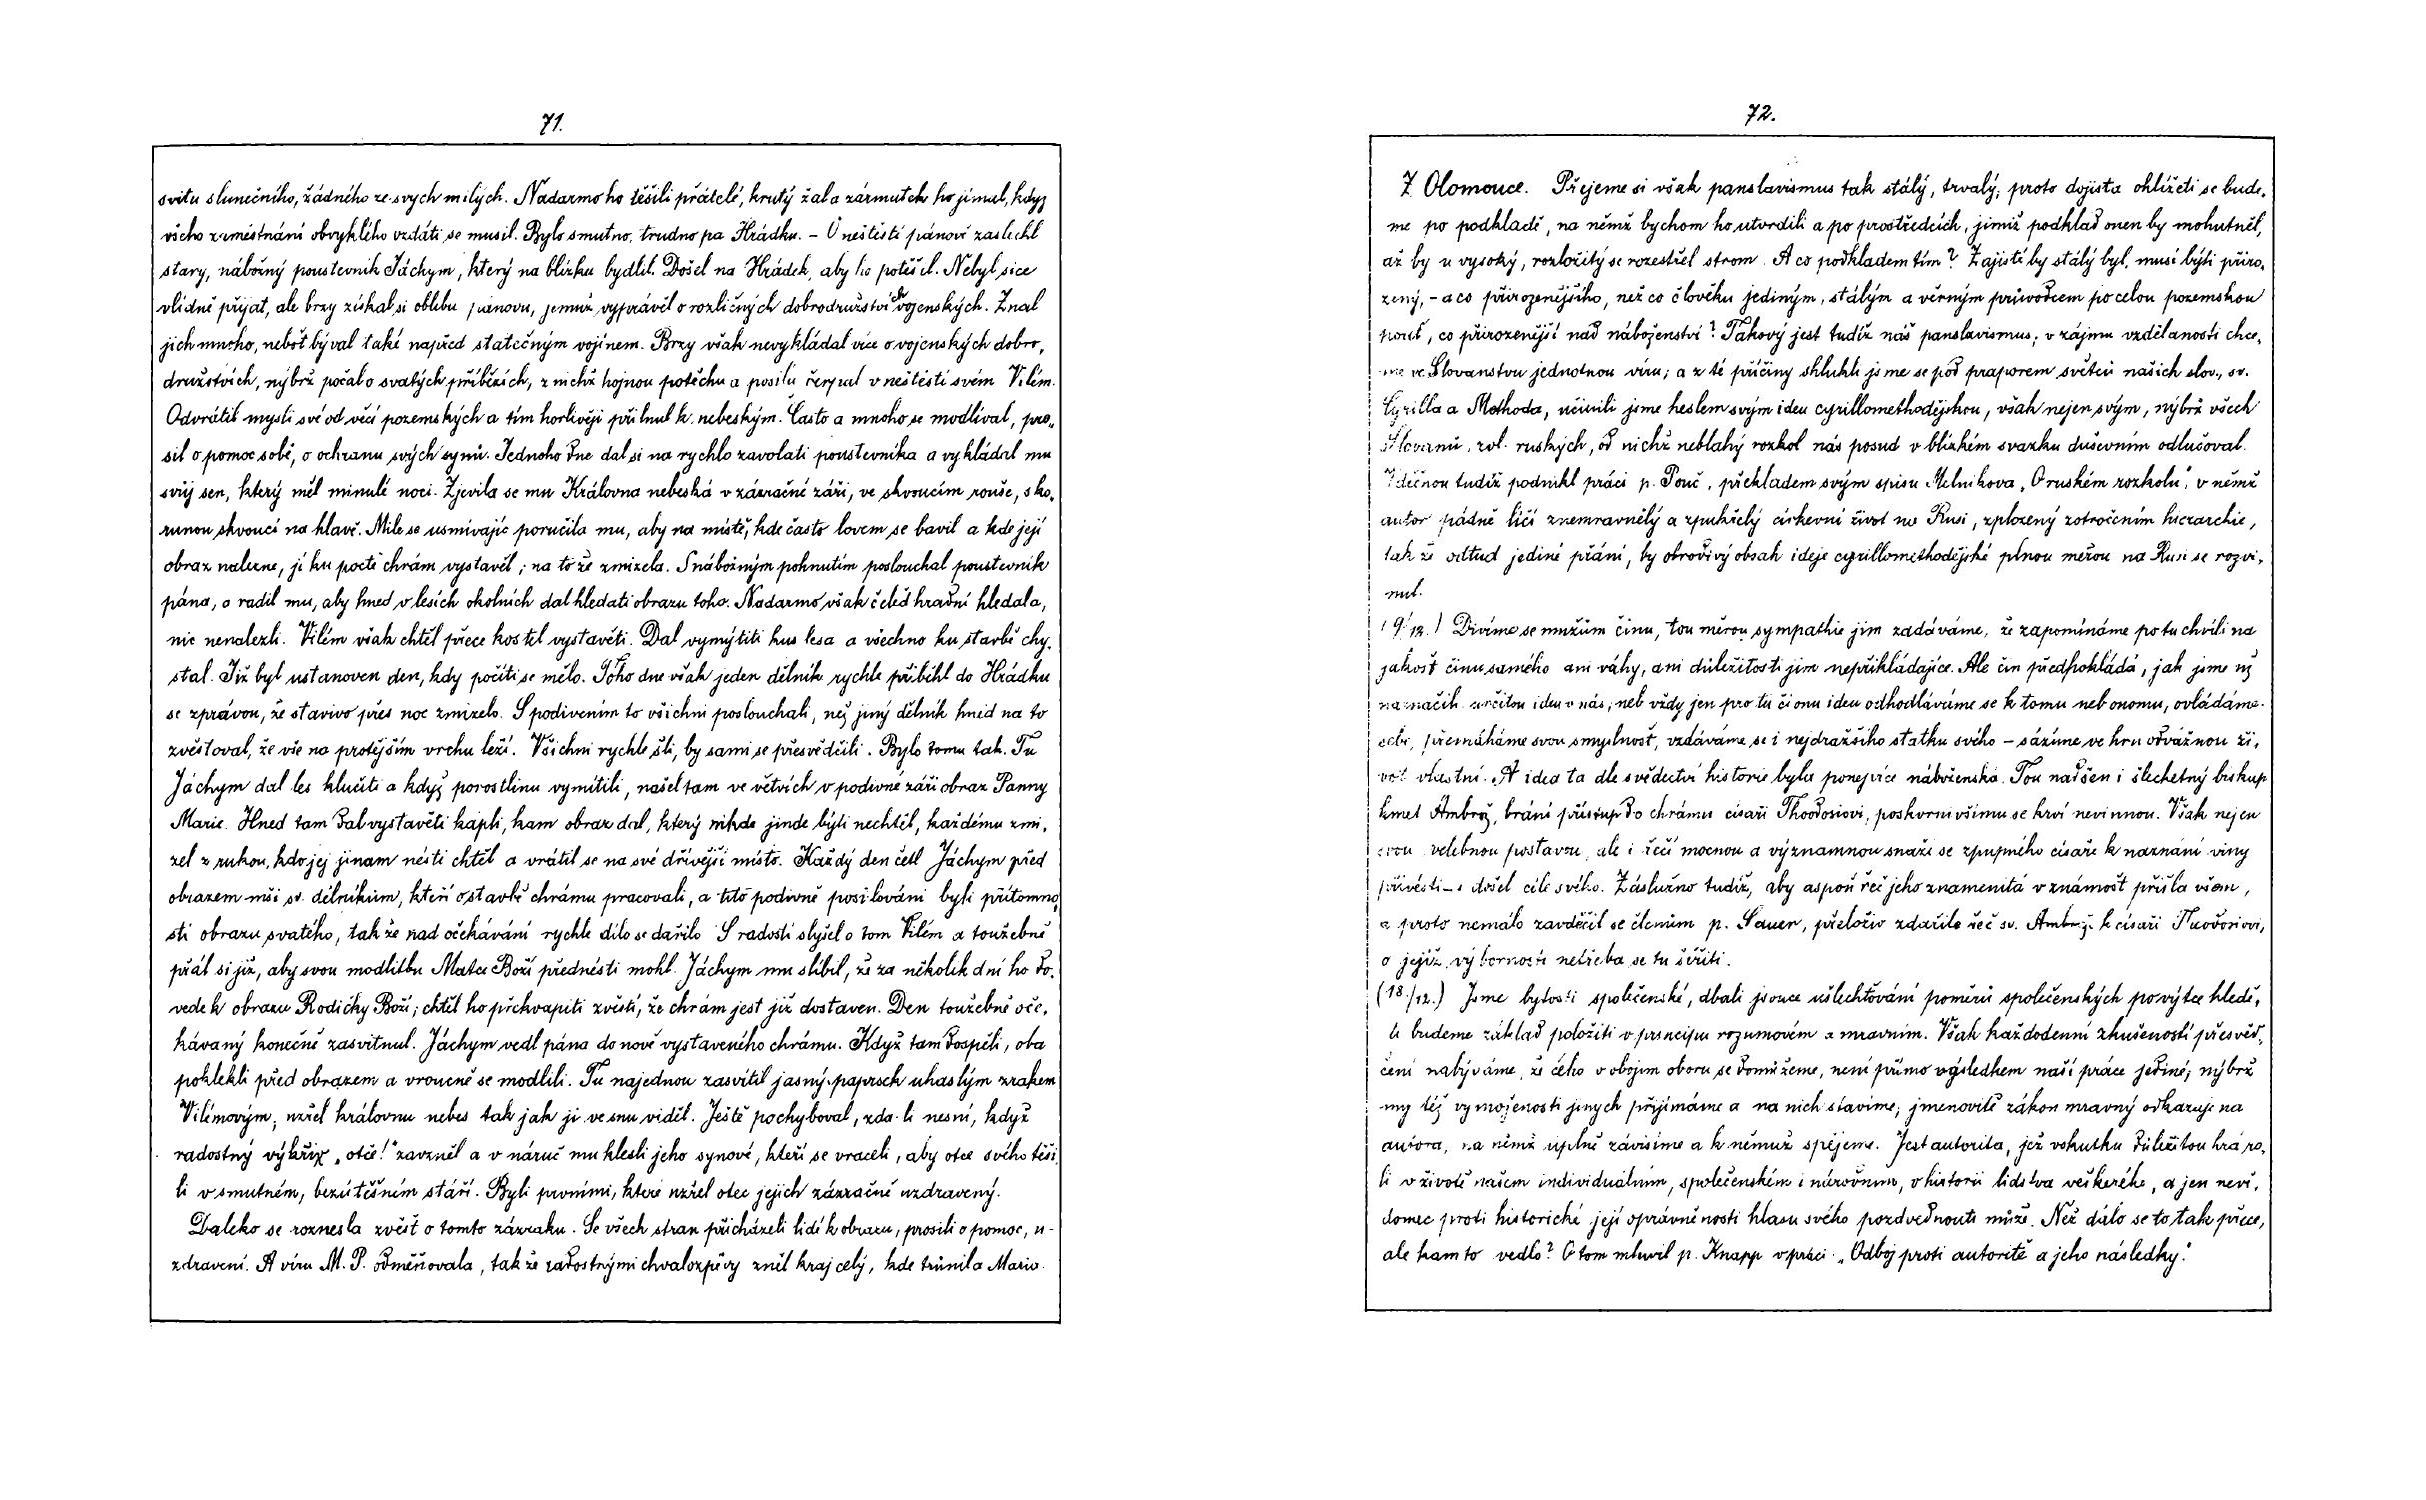 71.
svitu slunečního, žádného ze svych milých. Nadarmo ho těšili přátelé, krutý žal a zármutek ho jímal, kdyz
všeho zaměstnání obvyklého vzdáti se musil. Bylo smutno, trudno na Hrádku. – O neštěstí pánově zaslechl
stary, nábožný poustevník Jáchym, který na blízku bydlil. Došel na Hrádek, aby ho potěšil. Nebyl sice
vlídně přijat, ale brzy získal si oblibu pánovu, jemuž vyprávěl o rozličných dobrodružstvích vojenských. Znal
jich mnoho, neboť býval také napřed statečným vojínem. Brzy však nevykládal více o vojenských dobro„
družstvích, nýbrž počal o svatých příbězích, z nichž hojnou potěchu a posilu čerpal v neštěstí svém Vilém.
Odvrátil mysli své od věcí pozemských a tím horlivěji přilnul k nebeským. Často a mnoho se modlíval, pro„
sil o pomoc sobě, o ochranu svých synů. Jednoho dne dal si na rychlo zavolati poustevníka a vykládal mu
svůj sen, který měl minulé noci. Zjevila se mu Královna nebeská v zázračné záři, ve skvoucím rouše, s ko„
runou skvoucí na hlavě. Mile se usmívajíc poručila mu, aby na místě, kde často lovem se bavil a kde její
obraz nalezne, jí ku poctě chrám vystavěl; na to že zmizela. S nábožným pohnutím poslouchal poustevník
pána, a radil mu, aby hned v lesích okolních dal hledati obrazu toho. Nadarmo však čeleď hradní hledala,
nic nenalezli. Vilém však chtěl přece kostel vystavěti. Dal vymýtiti kus lesa a všechno ku stavbě chy„
stal. Již byl ustanoven den, kdy počíti se mělo. Toho dne však jeden dělník rychle přiběhl do Hrádku
se zprávou, že stavivo přes noc zmizelo. S podivením to všichni poslouchali, než jiný dělník hned na to
zvěstoval, že vše na protějším vrchu leží. Všichni rychle šli, by sami se přesvědčili. Bylo tomu tak. Tu
Jáchym dal les klučiti a když porostlinu vymítili, našel tam ve větvích v podivné záři obraz Panny
Marie. Hned tam dal vystavěti kapli, kam obraz dal, který nikde jinde býti nechtěl, každému zmi„
zel z rukou, kdo jej jinam nésti chtěl a vrátil se na své dřívější místo. Každý den četl Jáchym před
obrazem mši sv. dělníkům, kteří o stavbě chrámu pracovali, a tito podivně posilováni byli přítomno„
stí obrazu svatého, tak že nad očekávání rychle dílo se dařilo. S radostí slyšel o tom Vilém a toužebně
přál si již, aby svou modlitbu Matce Boží přednésti mohl. Jáchym mu slíbil, že za několik dní ho do„
vede k obrazu Rodičky Boží; chtěl ho překvapiti zvěstí, že chrám jest již dostaven. Den toužebně oče„
kávaný konečně zasvitnul. Jáchym vedl pána do nově vystaveného chrámu. Když tam dospěli, oba
poklekli před obrazem a vroucně se modlili. Tu najednou zasvitil jasný paprsek uhaslým zrakem
Vilémovým, uzřel královnu nebes tak jak ji ve snu viděl. Ještě pochyboval, zda-li nesní, když
radostný výkřik „otče!“ zavzněl a v náruč mu klesli jeho synové, kteří se vraceli, aby otce svého těši„
li v smutném, bezútěšném stáří. Byli prvními, které uzřel otec jejich zázračně uzdravený.
Daleko se roznesla zvěst o tomto zázraku. Se všech stran přicházeli lidí k obrazu, prosili o pomoc, u-
zdravení. A víru M. P. odměňovala, tak že radostnými chvalozpěvy zněl kraj celý, kde trůnila Maria.
72.
Z Olomouce. Přejeme si však panslavismus tak stálý, trvalý; proto dojista ohlížeti se bude„
me po podkladě, na němž bychom ho utvrdili a po prostředcích, jimiž podklad onen by mohutněl,
až by u vysoký, rozložitý se rozestřel strom. A co podkladem tím? Zajisté by stálý byl, musí býti přiro„
zený, – a co přirozenějšího, než co člověku jediným, stálým a věrným průvodcem po celou pozemskou
pouť, co přirozenější nad náboženství? Takový jest tudíž náš panslavismus; v zájmu vzdělanosti chce„
me ve Slovanstvu jednotnou víru; a z té příčiny shlukli jsme se pod praporem světců našich slov., sv.
Cyrilla a Methoda, učinili jsme heslem svým ideu cyrillomethodějskou, však nejen svým, nýbrž všech
Slovanů, zvl. ruských, od nichž neblahý rozkol nás posud v blízkém svazku duševním odlučoval.
Vděčnou tudíž podnikl práci p. Pouč, překladem svým spisu Melnikova „O ruském rozkolu“, v němž
autor pádně líčí znemravnělý a zpuchřelý církevní život na Rusi, zplozený zotročením hierarchie,
tak že odtud jediné přání, by obrodivý obsah ideje cyrillomethodějské plnou měrou na Rusi se rozvi„
nul.
(9/12.) Divíme se mužům činu, tou měrou sympathie jim zadáváme, že zapomínáme po tu chvíli na
jakosť činu samého ani váhy, ani důležitosti jim nepřikládajíce. Ale čin předpokládá, jak jsme už
naznačili určitou ideu v nás; neb vždy jen pro tu či onu ideu odhodláváme se k tomu neb onomu, ovládáme
sebe, přemáháme svou smyslnosť, vzdáváme se i nejdražšího statku svého – sázíme ve hru odvážnou ži„
vot vlastní. A idea ta dle svědectví historie byla ponejvíce náboženská. Tou nadšen i šlechetný biskup
kmet Ambrož, brání přístup do chrámu císaři Theodosiovi, poskvrnivšímu se krví nevinnou. Však nejen
svou velebnou postavou, ale i řečí mocnou a významnou snaží se zpupného císaře k naznání viny
přivésti – i došel cíle svého. Záslužno tudíž, aby aspoň řeč jeho znamenitá v známosť přišla všem,
a proto nemálo zavděčil se členům p. Sauer, přeloživ zdařile řeč sv. Ambrož. k císaři Theodosiovi,
o jejíž výbornosti netřeba se tu šířiti.
(18./12.) Jsme bytosti společenské, dbali jsouce ušlechťování poměrů společenských povýtce hledě„
li budeme základ položiti v principu rozumovém a mravním. Však každodenní zkušeností přesvěd„
čení nabýváme, že čeho v obojím oboru se domůžeme, není přímo výsledkem naší práce jediné; nýbrž
my též vymoženosti jiných přijímáme a na nich stavíme; jmenovitě zákon mravný odkazuje na
autora, na němž úplně závisíme a k němuž spějeme. Jest autorita, jež vskutku důležitou hrá ro„
li v životě našem individuálním, společenském i národním, v historii lidstva veškerého, a jen nevě„
domec proti historické její oprávněnosti hlasu svého pozdvednouti může. Než dálo se to tak přece,
ale kam to vedlo? O tom mluvil p. Knapp v práci „Odboj proti autoritě a jeho následky.“